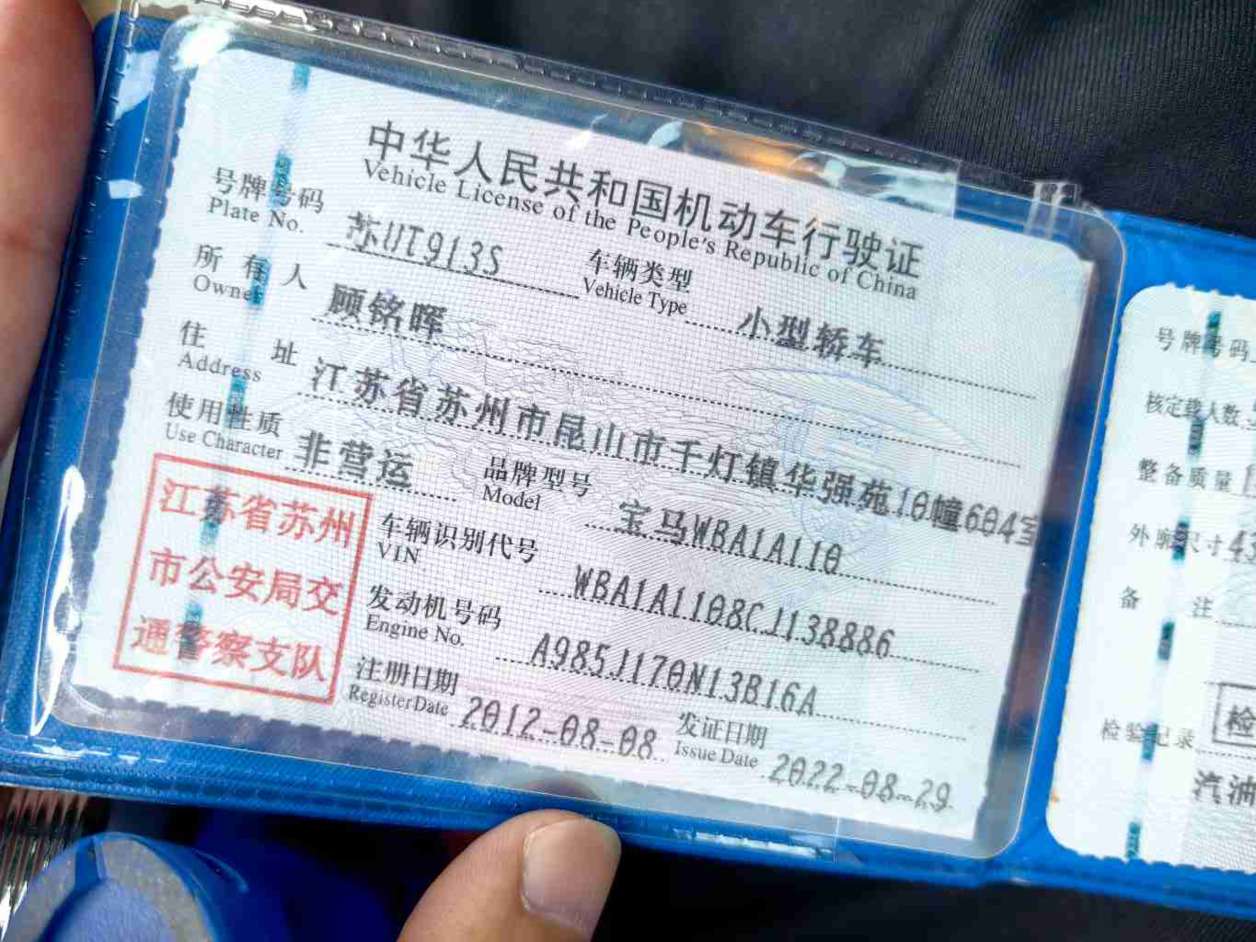 中华人民共和国机动车行驶证
Vehicle License of the People's Republic of China
号牌号码 苏UT913S 车辆类型 小型轿车
Plate No. Vehicle Type
所有人 顾铭晖
Owner
住址 江苏省苏州市昆山市千灯镇华强苑10幢604室
Address
使用性质 非营运 品牌型号 宝马WBA1A110
Use Character Model
江苏省苏州
市公安局交
通警察支队
车辆识别代号 WBA1A1108CJ138886
VIN
发动机号码 A985J170N13B16A
Engine No.
注册日期 2012-08-08 发证日期 2022-08-29
Register Date Issue Date
号牌号码
核定载人数
整备质量
外廓尺寸 43
备注
检
检验记录
汽油